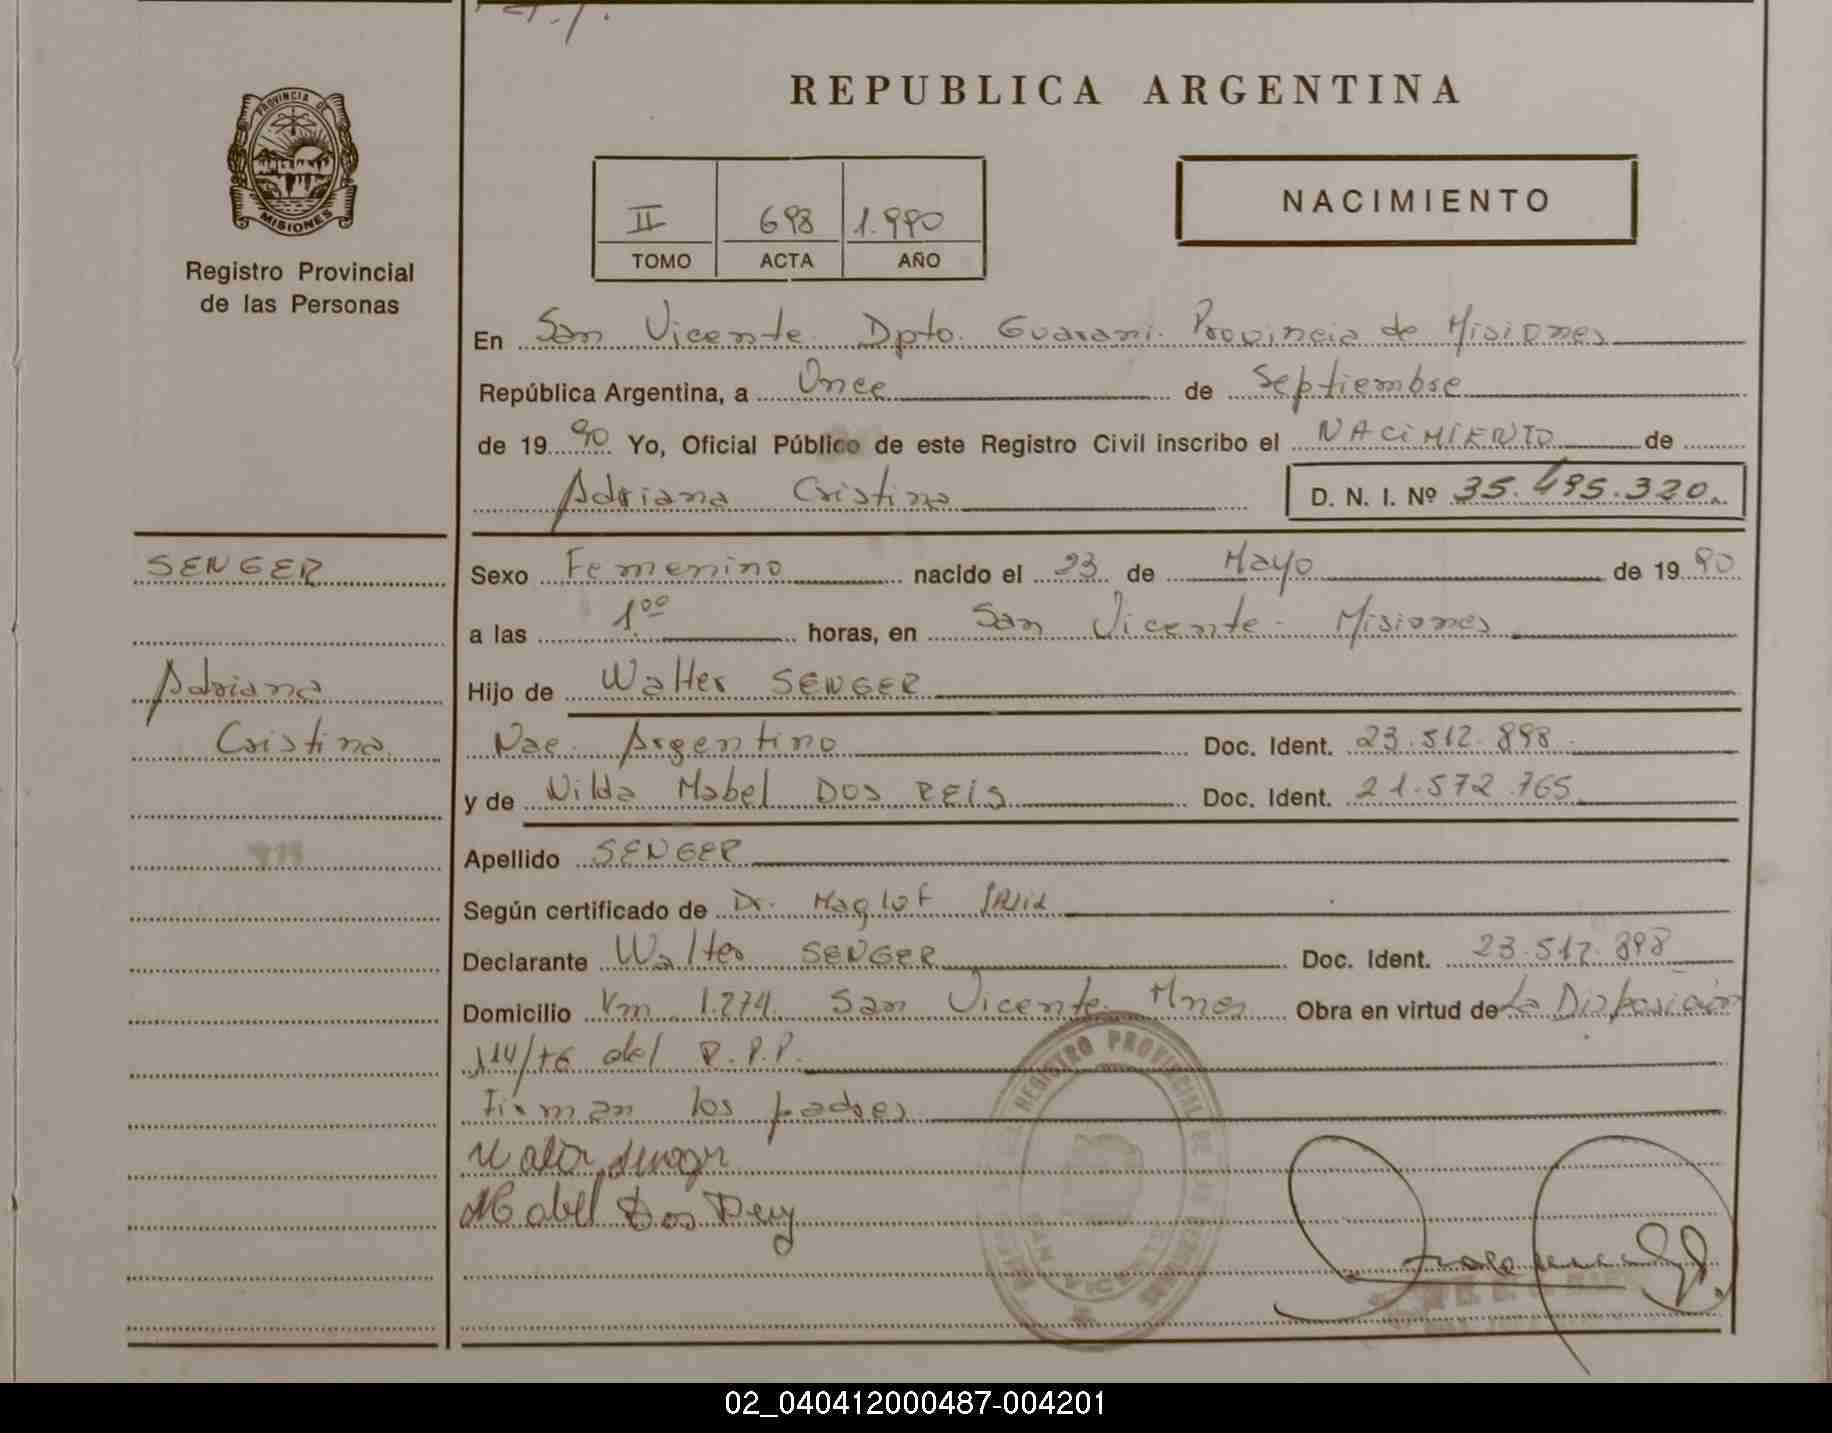 REPUBLICA ARGENTINA
PROVINCIA DE
MISIONES
Registro Provincial
de las Personas
II 698 1.990
TOMO ACTA AÑO
NACIMIENTO
En San Vicente. Dpto. Guarani. Provincia de Misiones
República Argentina, a Once de Septiembre
de 19 90 Yo, Oficial Público de este Registro Civil inscribo el NACIMIENTO de
Adriana Cristina D. N. I. Nº 35.495.320.
SENGER
Adriana
Cristina
Sexo Femenino nacido el 23 de Mayo de 19 90
a las 1.00 horas, en San Vicente - Misiones
Hijo de Walter SENGER
Nac. Argentino Doc. Ident. 23.512.898
y de Nilda Mabel DOS REIS Doc. Ident. 21.572.765
Apellido SENGER
Según certificado de Dr. Maglof
Declarante Walter SENGER Doc. Ident. 23.512.898
Domicilio Km 1.274. San Vicente. Mnes Obra en virtud de La Disposición
114/76 del R.P.P.
Firman los padres
Walter Senger
Mabel Dos Reis
REGISTRO PROVINCIAL DE LAS
SAN VICENTE
02_040412000487-004201